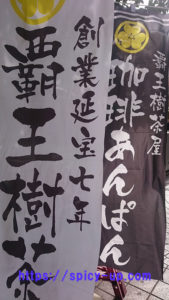 覇王樹茶屋
珈琲あんぱん
創業延宝七年
覇王樹茶
https://spicy-up.com